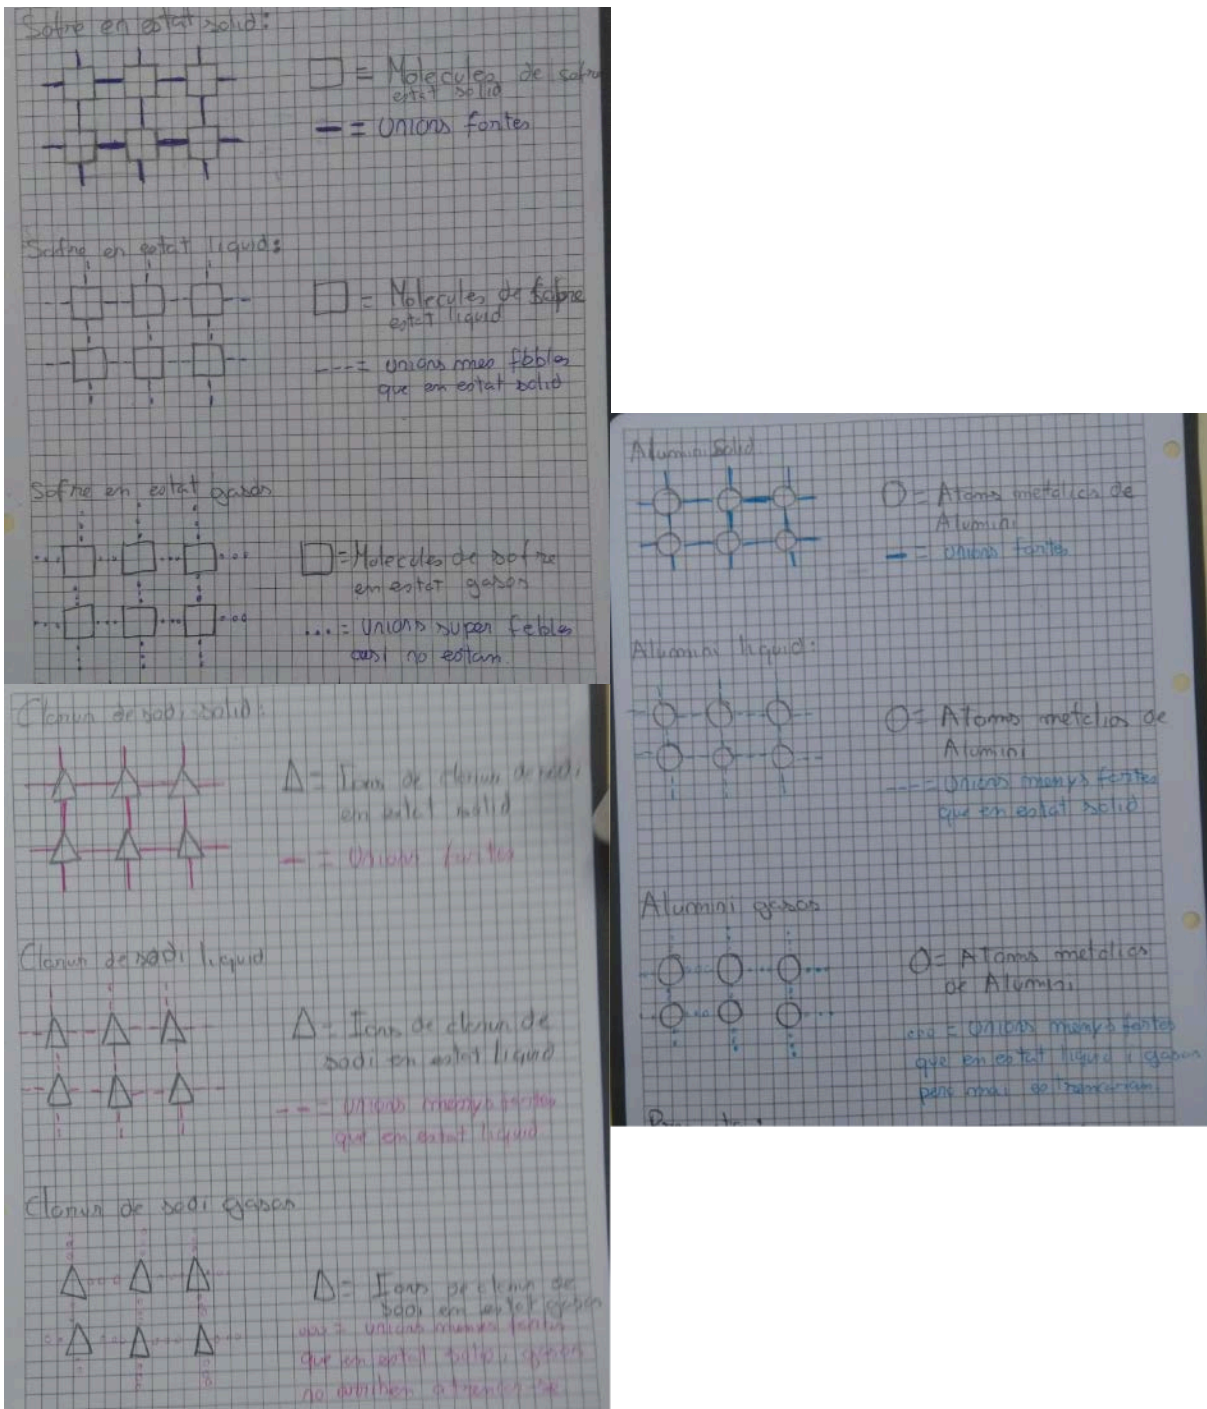 Sofre en estat solid:
= Molecules de sofre
estat solid
= Unions fortes
Sofre en estat liquid:
= Molecules de sofre
estat liquid
---= unions mes febles
que en estat solid
Sofre en estat gasos
= Molecules de sofre
en estat gasos
...= Unions super febles
casi no estan.
Clorur de sodi solid:
Δ= Ions de clorur de sodi
en estat solid
- = Unions fortes
Clorur de sodi liquid
Δ= Ions de clorur de
sodi en estat liquid
---= unions menys fortes
que en estat liquid
Clorur de sodi gasos
Δ= Ions de clorur de
sodi en estat gasos
ooo= unions menys fortes
que en estat solid, gasos
no arriben a trencar-se
Alumini solid.
O= Atoms metalics de
Alumini
- = unions fortes
Alumini liquid:
O= Atoms metalics de
Alumini
---= Unions menys fortes
que en estat solid
Alumini gasos
O= Atoms metalics
de Alumini
ooo = Unions menys fortes
que en estat liquid i gasos
pero mai es trencarian